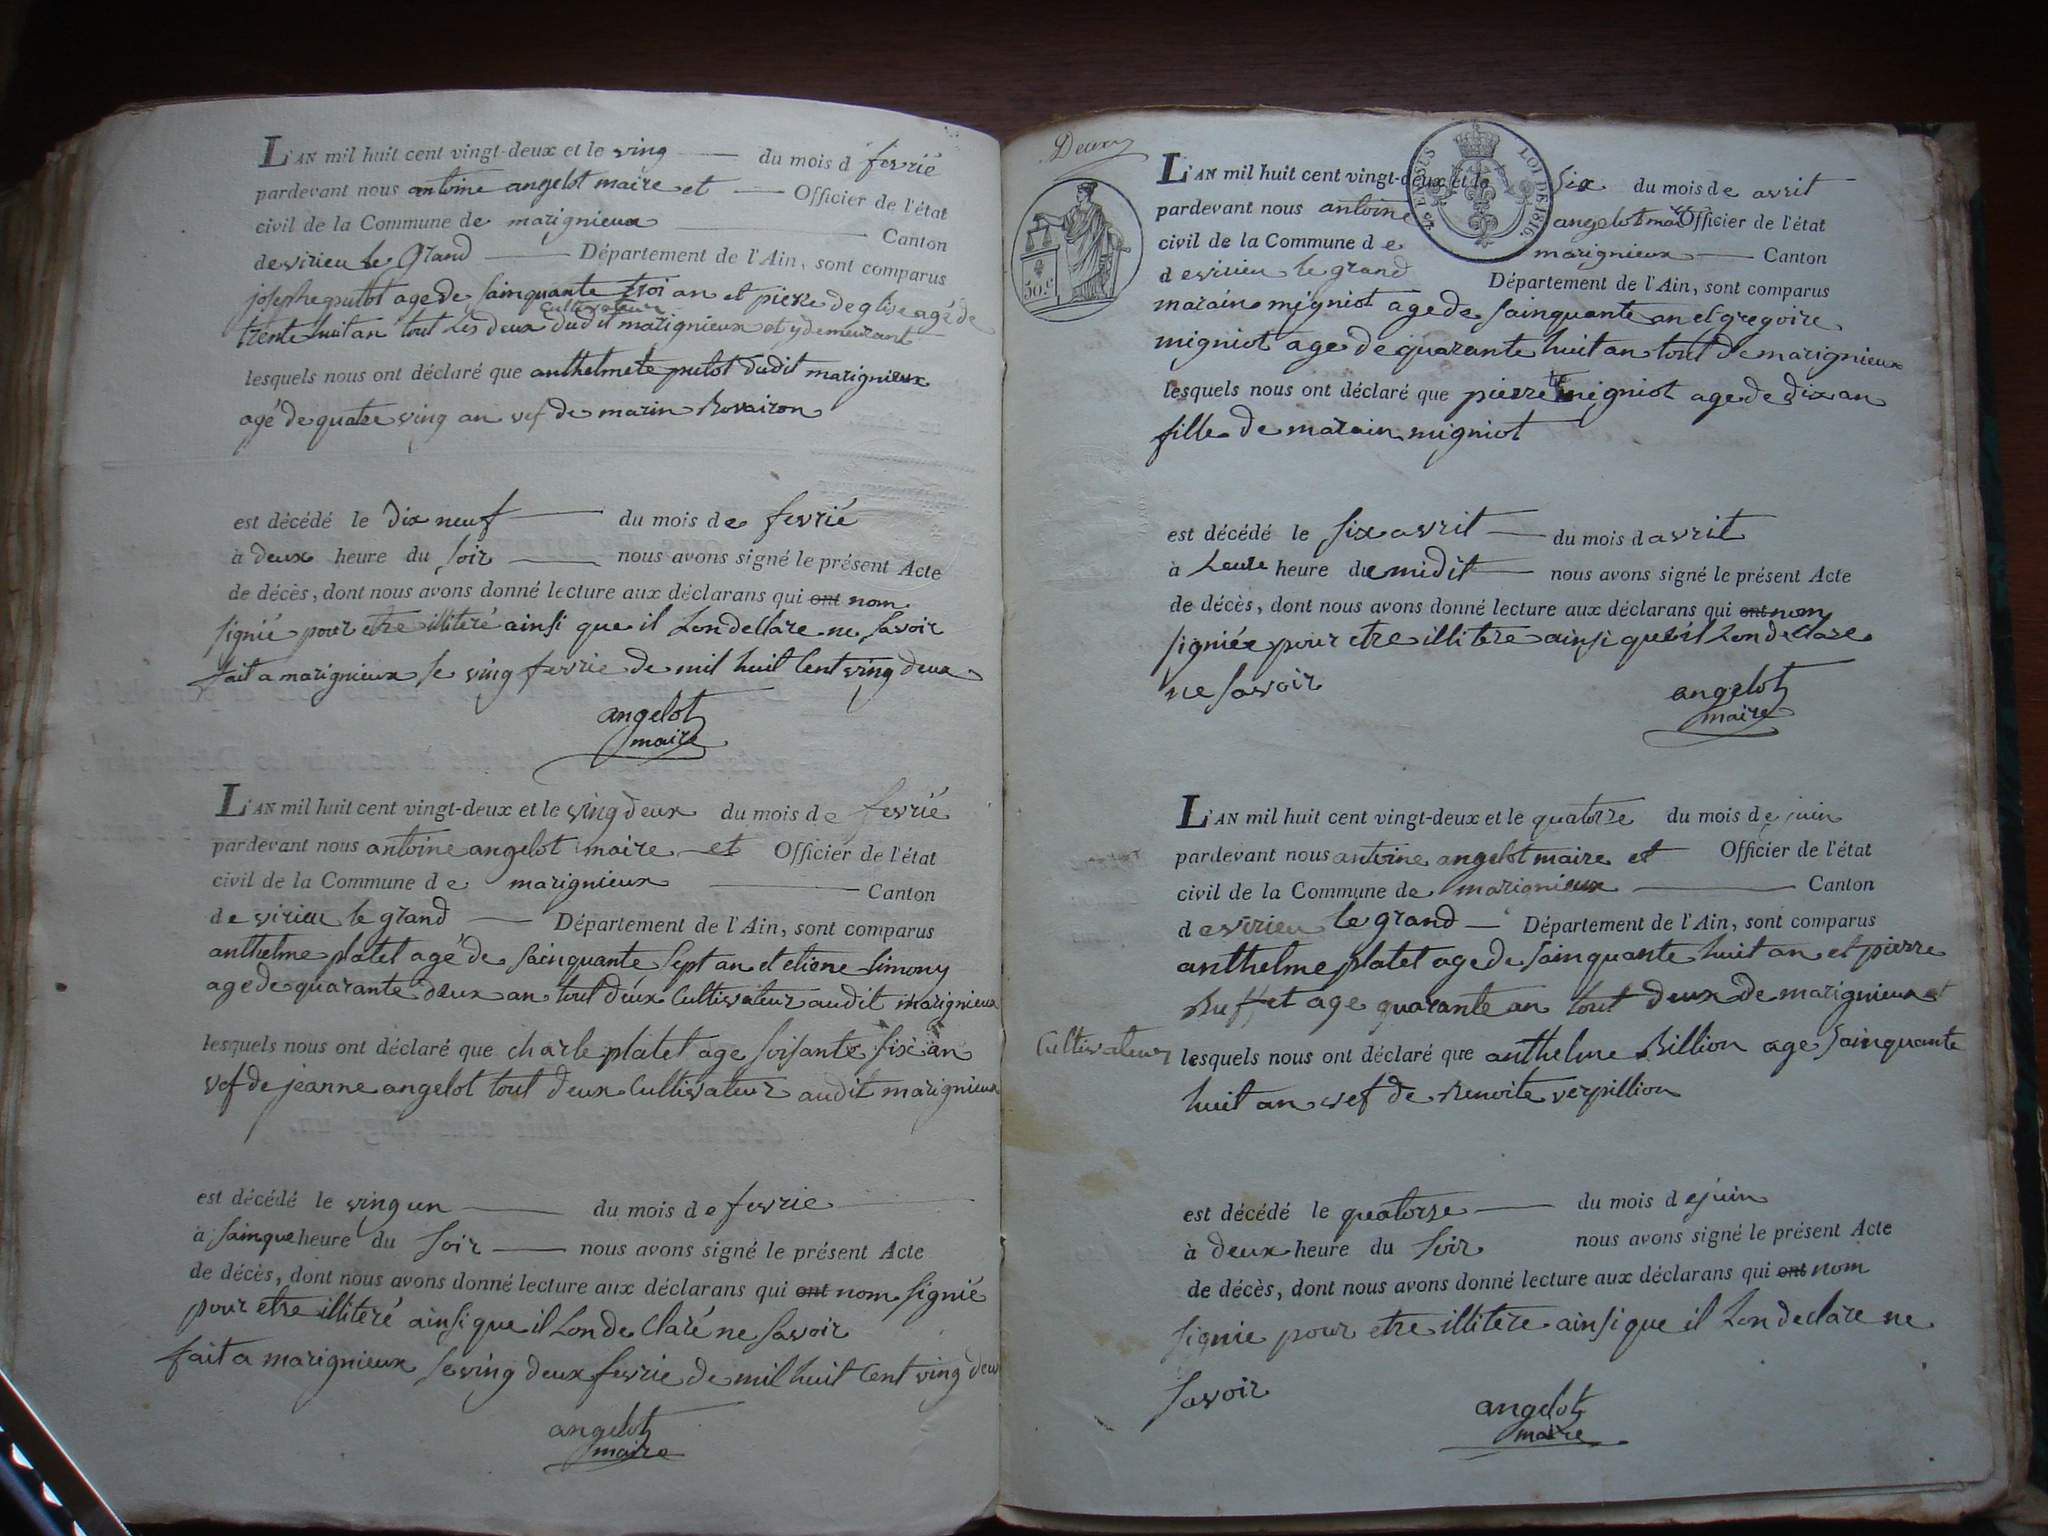 L'AN mil huit cent vingt-deux et le ving du mois d fevrié
pardevant nous antoine angelot maire et Officier de l'état
civil de la Commune de marignieux Canton
de virieu le Grand Département de l'Ain, sont comparus
josephe putot age de sainquante troi an et pierre deglise agé de
cultivateur
trente huit an tout les deux dudit marignieux et y demeurant
lesquels nous ont déclaré que anthelmete putot dudit marignieux
agé de quatre ving an vef de marin Rovairon
est décédé le dix neuf du mois de fevrié
à deux heure du soir nous avons signé le présent Acte
de décès, dont nous avons donné lecture aux déclarans qui ont nom
signié pour etre illiteré ainsi que il lon declare ne savoir
fait a marignieux le ving fevrie de mil huit cent ving deux
angelot
maire
L'AN mil huit cent vingt-deux et le ving deux du mois de fevrié
pardevant nous antoine angelot maire et Officier de l'état
civil de la Commune de marignieux Canton
de virieu le grand Département de l'Ain, sont comparus
anthelme platet agé de sainquante sept an et etiene simony
age de quarante deux an tout deux cultivateur audit marignieux
lesquels nous ont déclaré que charle platet age soisante six an
vef de jeanne angelot tout deux cultivateur audit marignieux
est décédé le ving un du mois de fevrie
à sainque heure du soir nous avons signé le présent Acte
de décès, dont nous avons donné lecture aux déclarans qui ont nom signié
pour etre illiteré ainsi que il lon de claré ne savoir
fait a marignieux le ving deux fevrie de mil huit cent ving deux
angelot
maire
Deux
50.c
25 EN SUS
LOI DE 1816.
L'AN mil huit cent vingt-deux et le six du mois de avrit
pardevant nous antoine angelot mair Officier de l'état
civil de la Commune de marignieux Canton
de virieu le grand Département de l'Ain, sont comparus
marain migniot age de sainquante an et gregoire
migniot age de quarante huit an tout de marignieux
lesquels nous ont déclaré que pierrette migniot age de dix an
fille de marain migniot
est décédé le six avrit du mois d avrit
à heure de midit nous avons signé le présent Acte
de décès, dont nous avons donné lecture aux déclarans qui ont nom
signiée pour etre illitere ainsi que il lon declare
ne savoir
angelot
maire
L'AN mil huit cent vingt-deux et le quatorse du mois de juin
pardevant nous antoine angelot maire et Officier de l'état
civil de la Commune de marignieux Canton
de virieu le grand Département de l'Ain, sont comparus
anthelme platet age de sainquante huit an et pierre
Buffet age quarante an tout deux de marignieux et
cultivateur
lesquels nous ont déclaré que anthelme Billion age sainquante
huit an vef de Benoite verpillion
est décédé le quatorse du mois de juin
à deux heure du soir nous avons signé le présent Acte
de décès, dont nous avons donné lecture aux déclarans qui ont nom
signie pour etre illitere ainsi que il lon declare ne
savoir
angelot
maire